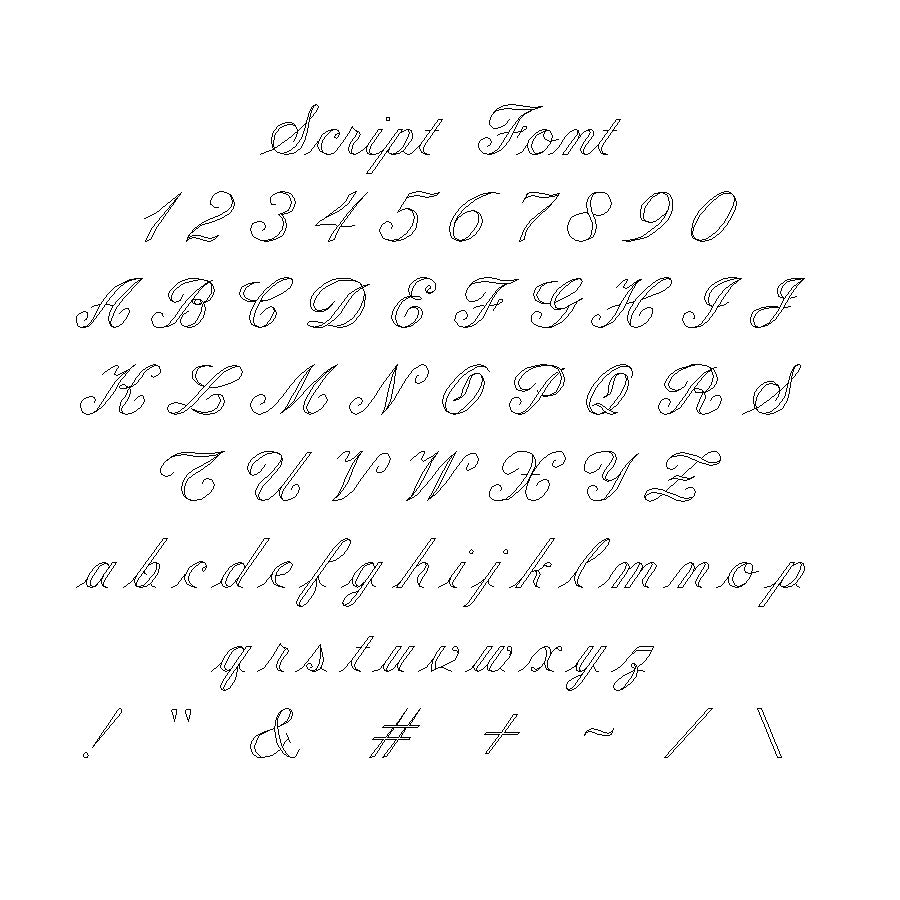 Script Font
1 2 3 4 5 6 7 8 9 0
A B C D E F G H I J
K L M N O P Q R S
T U V W X Y Z
a b c d e f g h i j k l m n o p
q r s t u v w x y z
! " & # + ~ / \